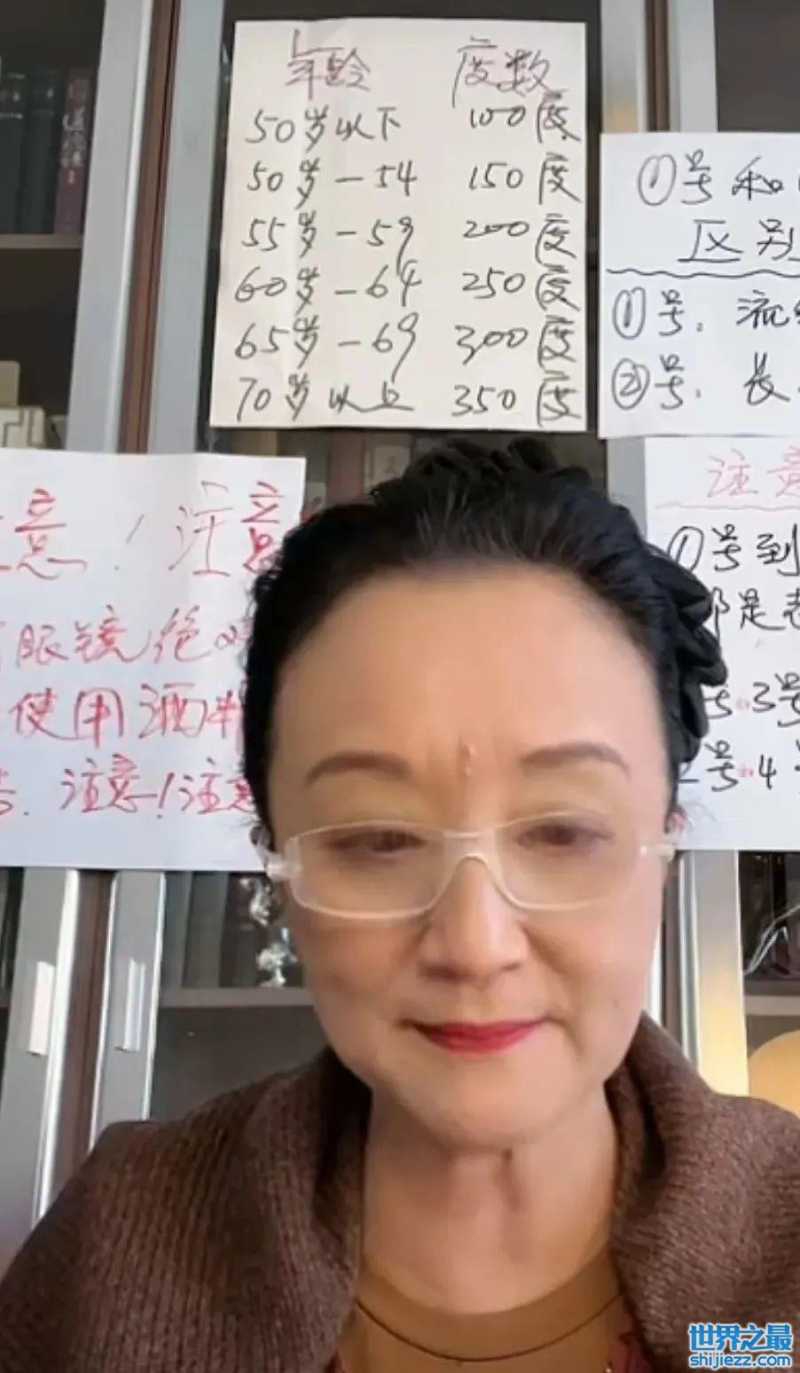 年龄 度数
50岁以下 100度
50岁-54 150度
55岁-59 200度
60岁-64 250度
65岁-69 300度
70岁以上 350度
①号和
区别
①号:流
②号:长
意!注意
眼镜绝
使用酒精
注意!注意
注意
①号到
都是老
号·3号
2号·4号
世界之最
shijiezz.com